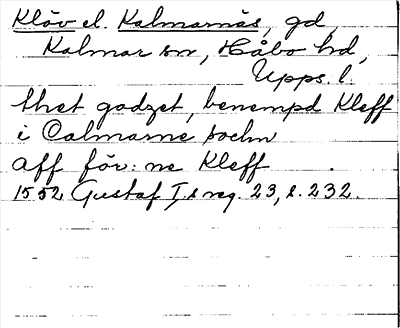 Klöv el. Kalmarnäs, gd
Kalmar sn, Håbo hd,
Upps. l.
thet godzet, benempd Kleff
i Calmarne sochn
aff för: ne Kleff
1552 Gustaf I:s reg. 23, s. 232.